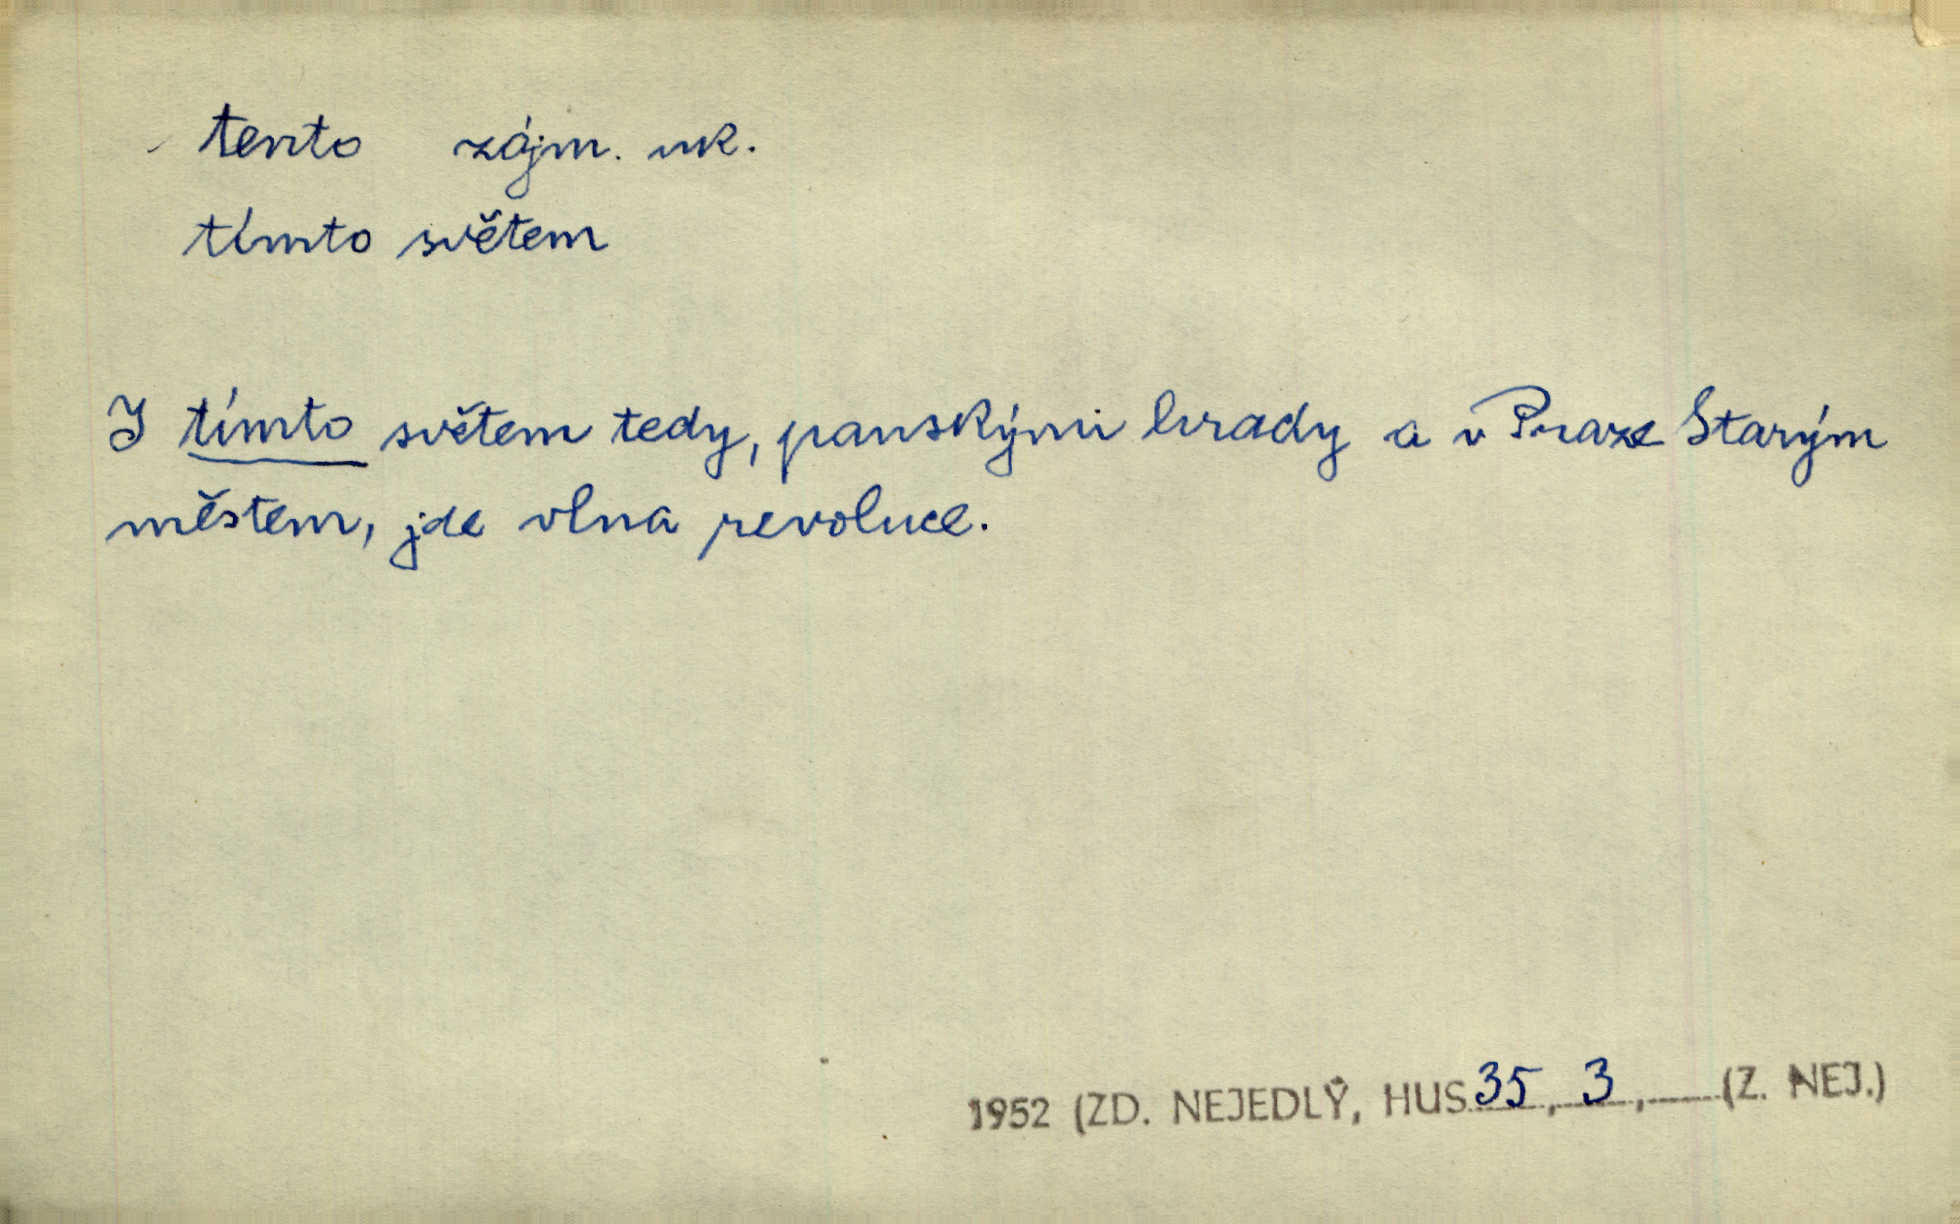 tento zájm. uk.
tímto světem
I tímto světem tedy, panskými hrady a v Praze Starým
městem, jde vlna revoluce.
1952 (ZD. NEJEDLÝ, HUS 35, 3, (Z. NEJ.)